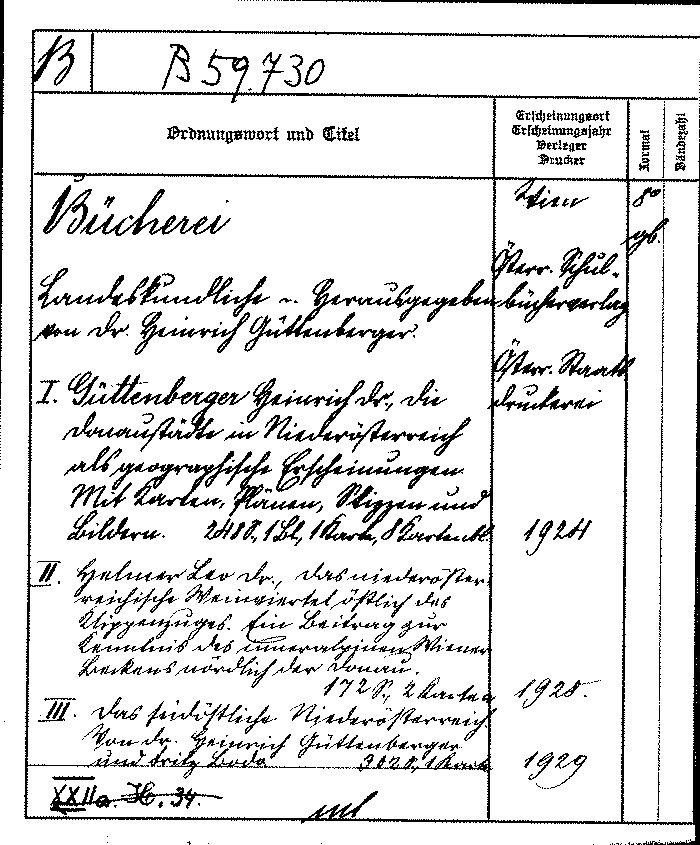 B
B 59.730
Ordnungswort und Titel
Erscheinungsort
Erscheinungsjahr
Verleger
Drucker
Format
Bändezahl
Bücherei
Wien
8°
gb.
Landeskundliche -. Herausgegeben
von Dr. Heinrich Güttenberger.
Österr. Schul-
bücherverlag
Österr. Staats
druckerei
I. Güttenberger Heinrich Dr., Die
Donaustädte in Niederösterreich
als geographische Erscheinungen
Mit Karten, Plänen, Skizzen und
Bildern. 248 S., 1 Bl., 1 Karte, 8 Kartenbl.
1924
II. Helmer Leo Dr., Das niederöster-
reichische Weinviertel östlich des
Klippenzuges. Ein Beitrag zur
Kenntnis des inneralpinen Wiener
Beckens nördlich der Donau.
172 S., 2 Karten
1925.
III. Das südöstliche Niederösterreich
Von Dr. Heinrich Güttenberger
und Fritz Bodo 302 S., 1 Karte
1929
XXIIa. 34.